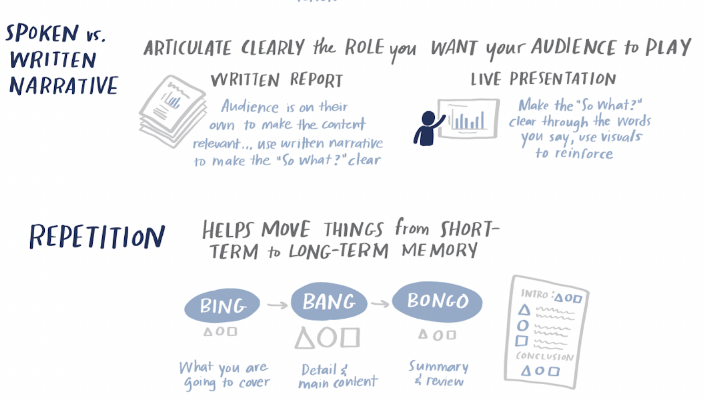 SPOKEN vs.
WRITTEN
NARRATIVE
ARTICULATE CLEARLY the ROLE you WANT your AUDIENCE to PLAY
WRITTEN REPORT
Audience is on their
own to make the content
relevant... use written narrative
to make the "So what?" clear
LIVE PRESENTATION
Make the "So what?"
clear through the words
you say, use visuals
to reinforce
REPETITION
HELPS MOVE THINGS from SHORT-
TERM to LONG-TERM MEMORY
BING
BANG
BONGO
What you are
going to cover
Detail &
main content
Summary
& review
INTRO:
CONCLUSION